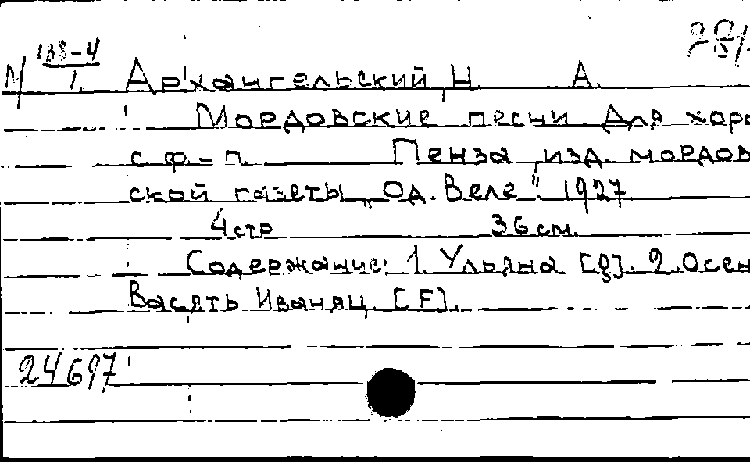 М 138-4/1. Архангельский, Н. А.
Мордовские песни для хора
с ф-п. Пенза, изд. мордов
ской газеты „Од. Веле". 1927
4 стр 36 см.
Содержание: 1. Ульяна [g]. 2. Осен
Васять Иваняц. [F].
24697